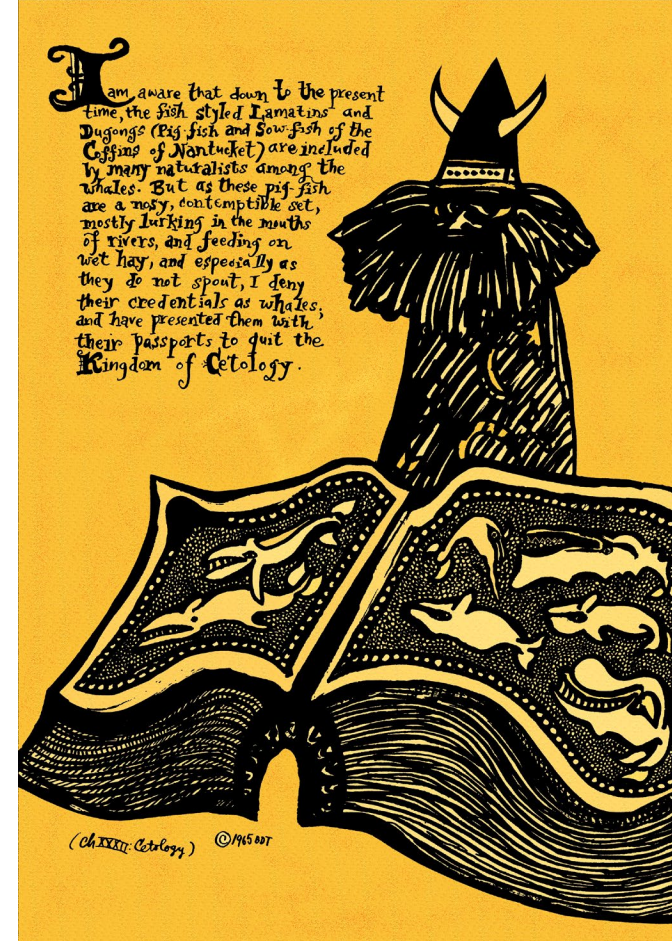 I am aware that down to the present
time, the fish styled Lamatins and
Dugongs (Pig-fish and Sow-fish of the
Coffins of Nantucket) are included
by many naturalists among the
whales. But as these pig-fish
are a nosy, contemptible set,
mostly lurking in the mouths
of rivers, and feeding on
wet hay, and especially as
they do not spout, I deny
their credentials as whales;
and have presented them with
their passports to quit the
Kingdom of Cetology.
(Ch XXXII: Cetology)
©1965 BDT